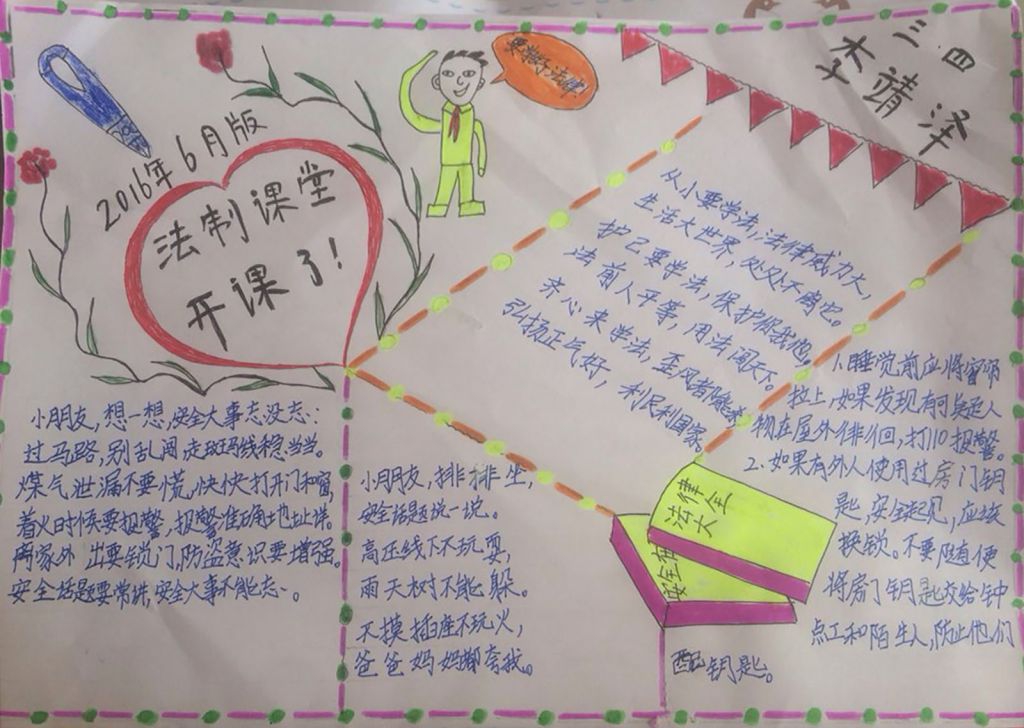 三.四
李靖泽
要学好法律
2016年6月版
法制课堂
开课了!
从小要学法,法律威力大,
生活大世界,处处不离它。
护己要学法,保护你我他。
法前人平等,用法闯天下,
齐心来学法,歪风都除杀
弘扬正气好,利民利国家。
小朋友,想一想,安全大事忘没忘:
过马路,别乱闯走斑马线稳当当。
煤气泄漏不要慌,快快打开门和窗,
着火时候要报警,报警准确地址详。
离家外出要锁门,防盗意识要增强。
安全话题要常讲,安全大事不能忘。
小朋友,排排坐,
安全话题说一说。
高压线下不玩耍,
雨天树下不能躲。
不摸插座不玩火,
爸爸妈妈都夸我。
1.睡觉前应将窗帘
拉上,如果发现有可疑人
物在屋外徘徊,打110报警。
2.如果有外人使用过房门钥
匙,安全起见,应该
换锁。不要随便
将房门钥匙交给钟
点工和陌生人,防止他们
配钥匙。
法律
大全
安全